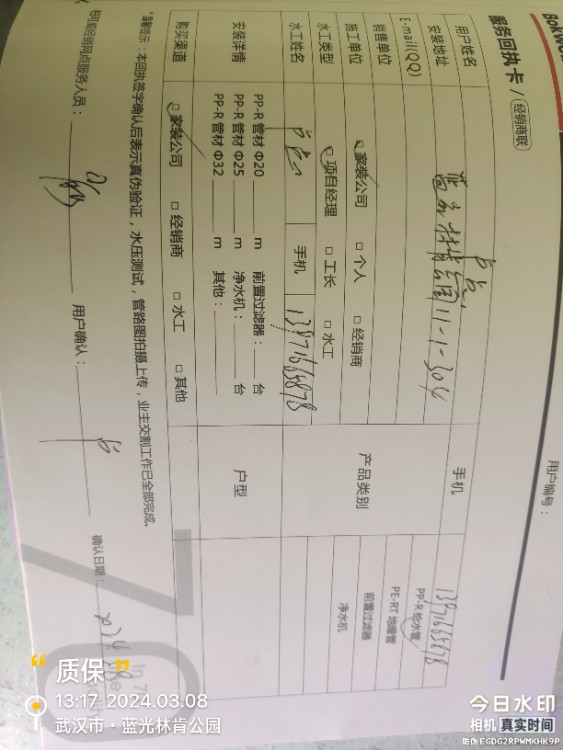 服务回执卡 / 经销商联
用户编号：
用户姓名 手机 13971665878
安装地址 11-1-304
E-mail(QQ)
销售单位
施工单位 □ 家装公司 □ 个人 □ 经销商
水工类型 □ 项目经理 □ 工长 □ 水工
水工姓名 手机 13971665878
产品类别
PP-R 给水管
PE-RT 地暖管
前置过滤器
净水机
安装详情
PP-R 管材 Φ20 m 前置过滤器： 台
PP-R 管材 Φ25 m 净水机： 台
PP-R 管材 Φ32 m 其他：
户型
购买渠道 □ 家装公司 □ 经销商 □ 水工 □ 其他
*温馨提示：本回执签字确认后表示真伪验证，水压测试，管路图拍摄上传，业主交割工作已全部完成。
经销网点服务人员： 用户确认： 确认日期：
质保
13:17 2024.03.08
武汉市·蓝光林肯公园
今日水印
相机 真实时间
防伪 EGDG2RPWMKHK9P